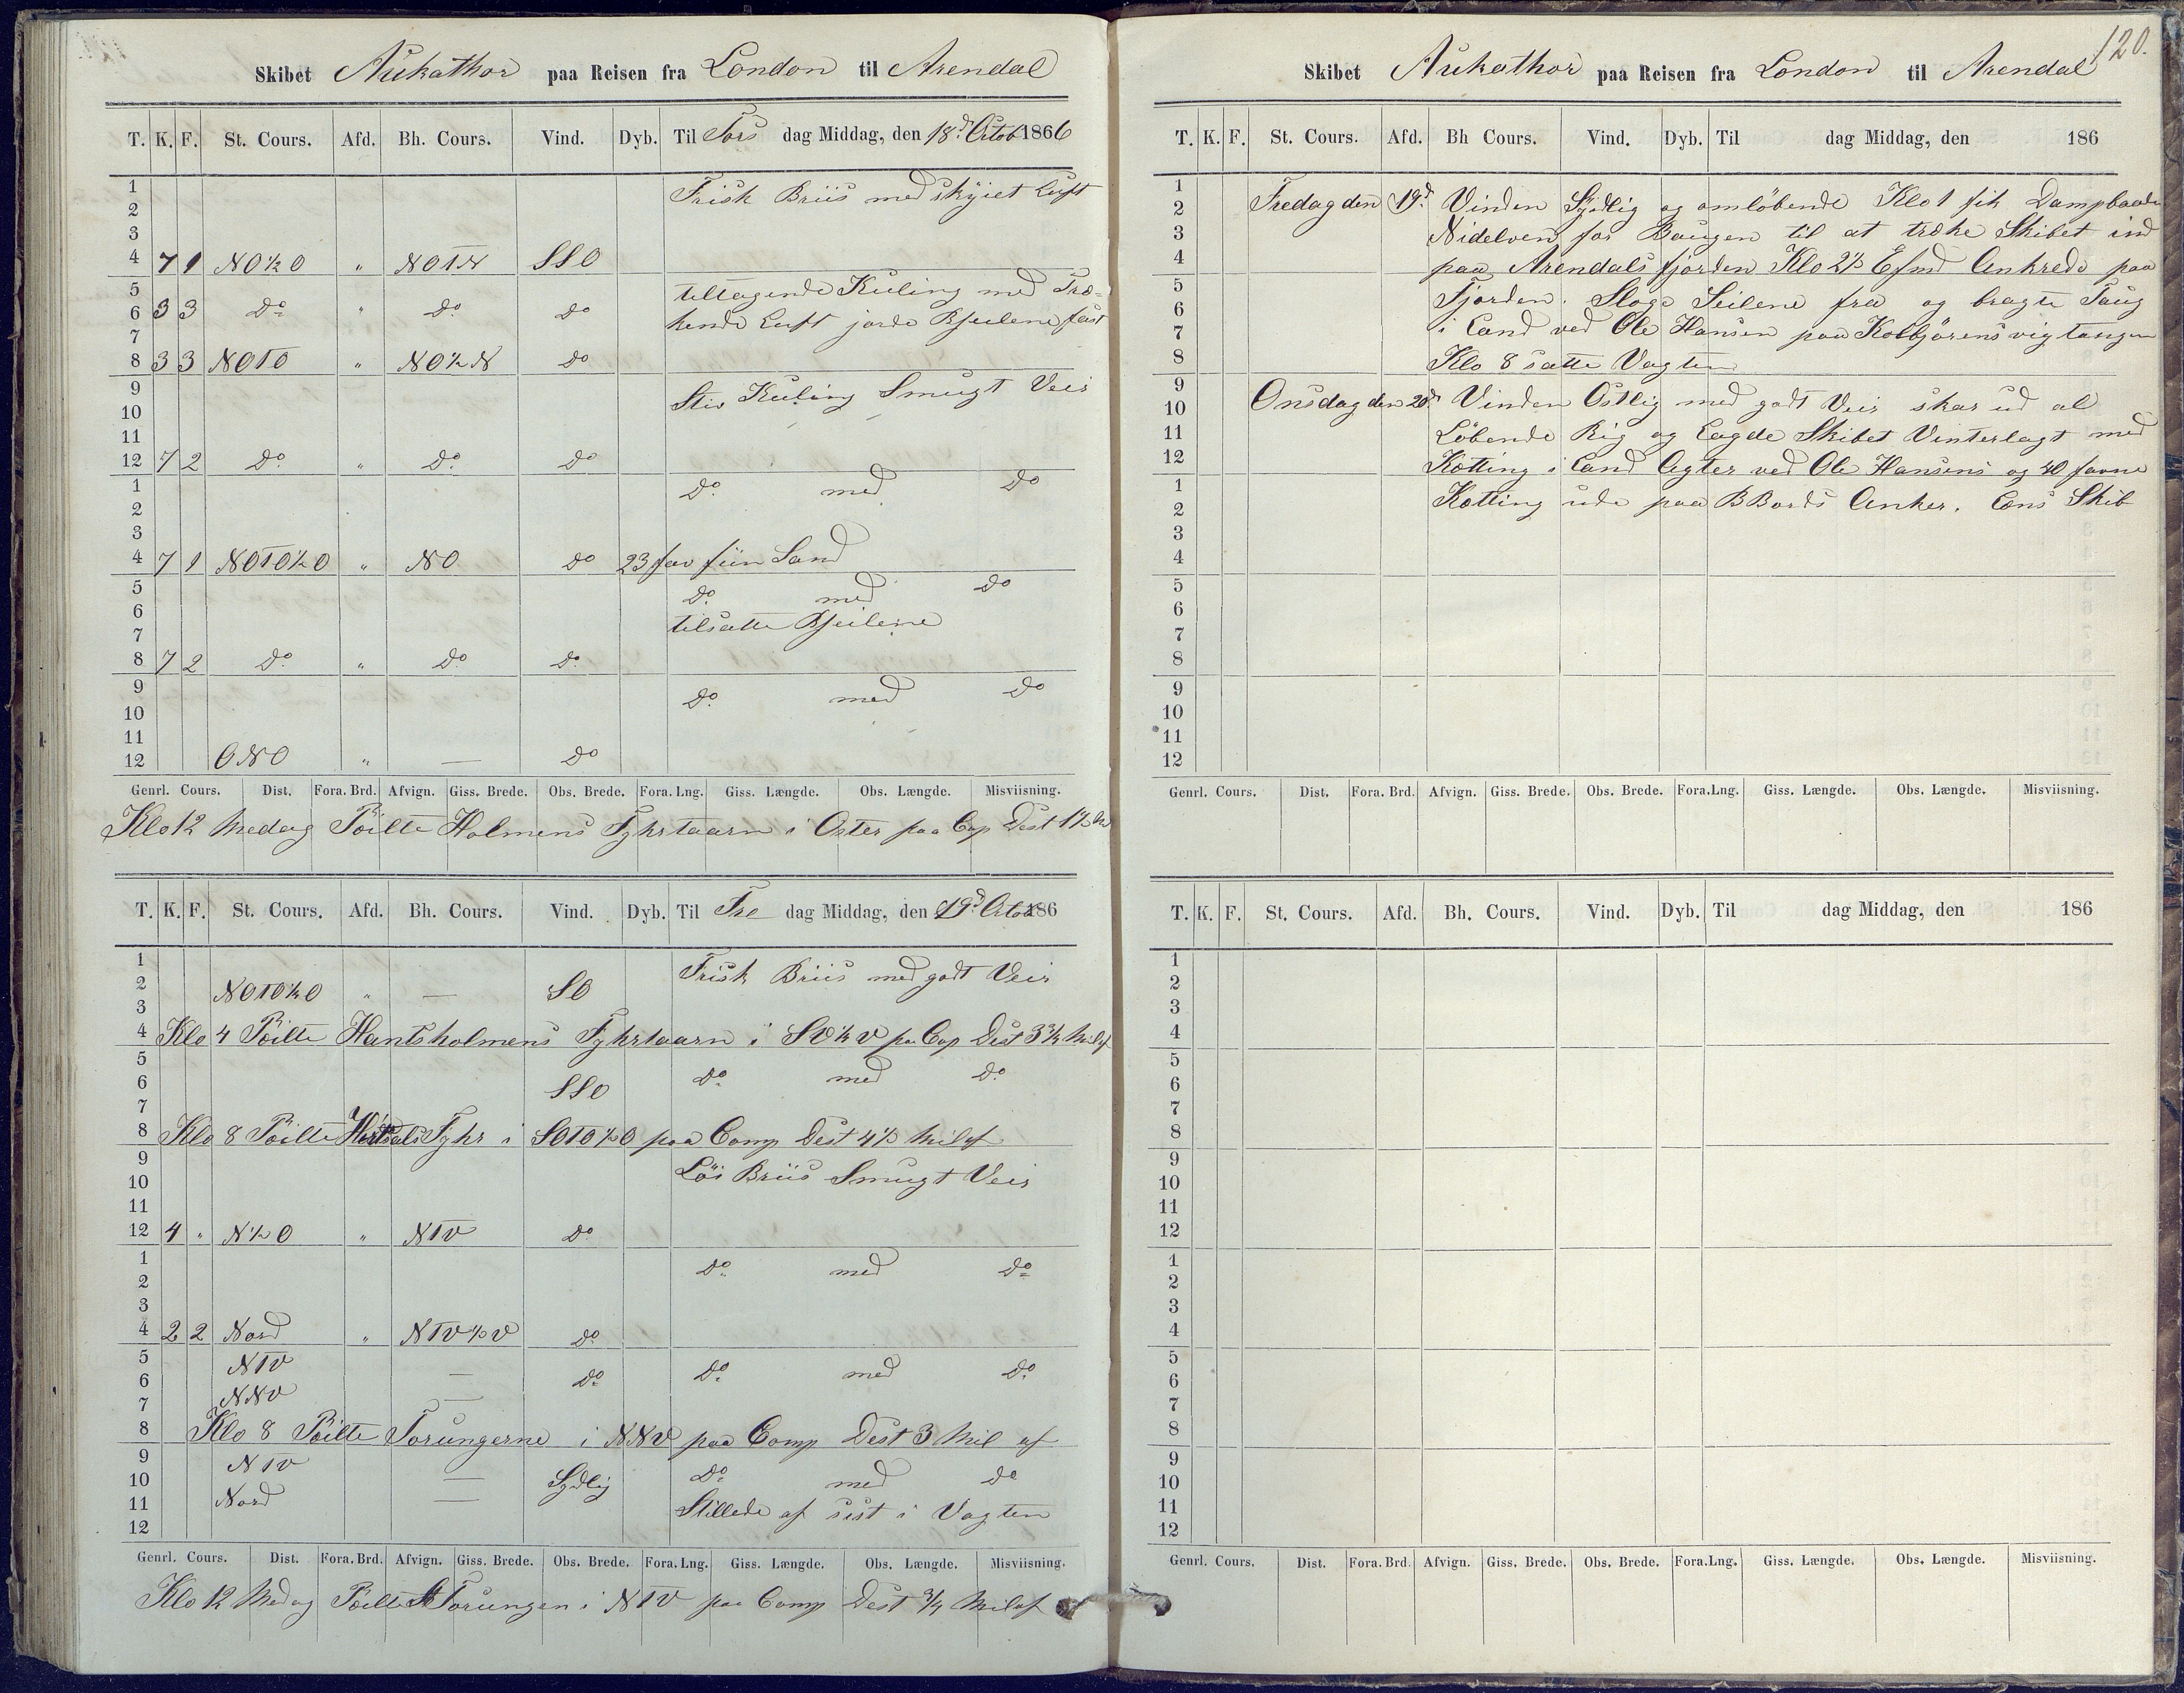 Skibet Aukathor paa Reisen fra London til Arendal
T. K. F. St. Cours. Afd. Bh. Cours. Vind. Dyb. Til Tors dag Middag, den 18d Octob 1866
1 Frisk Briis med skyiet Luft
2
3
4 7 1 NO½O " NOTN SSO
5 tiltagende Kuling med Træ-
6 3 3 Do " Do do
kende Luft jorde Bseilene fast
7
8 3 3 NOTO " NO½N do
9 Stiv Kuling Smugt Veir
10
11
12 7 2 Do " Do do
1 Do med Do
2
3
4 7 1 NOTO½O " NO do 23 fav fiin Sand
5 Do med Do
6 tilsatte Bseilene
7
8 7 2 Do " Do Do
9 Do med Do
10
11
12 ONO " — do
Genrl. Cours. Dist. Fora. Brd. Afvign. Giss. Brede. Obs. Brede. Fora. Lng. Giss. Længde. Obs. Længde. Misviisning.
Klo 12 Medag Peilte Holmens Fyhrtaarn i Oster paa Cop Dest 1½
T. K. F. St. Cours. Afd. Bh. Cours. Vind. Dyb. Til Fre dag Middag, den 19d Octob 186
1 Frisk Briis med godt Veir
2 NOTO½O " — SO
3
4 Klo 4 Peilte Hantsholmens Fyhrtaarn i SV½V pa Cop Dest 3¾ Mil af
5
6 SSO Do med Do
7
8 Klo 8 Peilte Fyhr i SOTO½O paa Comp Dest 4½ Mil af
9 Løi Briis Smugt Veir
10
11
12 4 " N½O " NTV do
1 Do med Do
2
3
4 2 2 Nord " NTV½V do
5 NTV
6 — Do Do med Do
7 NNV —
8 Klo 8 Peilte Torungerne i NNV paa Comp Dest 3 Mil af
9 NTV
10 — Sydlig Do med do
11 Nord — Stillede af sist i Vagten
12
Genrl. Cours. Dist. Fora. Brd. Afvign. Giss. Brede. Obs. Brede. Fora. Lng. Giss. Længde. Obs. Længde. Misviisning.
Klo 12 Medag Peilte St Torungen i NTV paa Comp Dest ¾ Mil af
120.
Skibet Aukathor paa Reisen fra London til Arendal
T. K. F. St. Cours. Afd. Bh Cours. Vind. Dyb. Til dag Middag, den 186
1
2 Fredag den 19d Vinden Sydlig og omløbende Klo 1 fik Dampbaade
3 Nidelven for Baugen til at træke Skibet ind
4 paa Arendals fjorden Klo 2½ Efmd Ankrede paa
5 Fjorden. Sloge Seilene fra og bragte Taug
6
7 i Land ved Ole Hansen paa Kolbjørensvigtangen
8 Klo 8 satte Vagten
9
10 Onsdag den 20d Vinden Ostlig med godt Veir skar ud al
11 Løbende Rig og Lagde Skibet Vinterlagt med
12 Kætting i Land Agter ved Ole Hansens og 40 favne
1 Kætting ude paa BBords Anker. Lens Skib
2
3
4
5
6
7
8
9
10
11
12
Genrl. Cours. Dist. Fora. Brd. Afvign. Giss. Brede. Obs. Brede. Fora.Lng. Giss. Længde. Obs. Længde. Misviisning.
T. K. F. St. Cours. Afd. Bh. Cours. Vind. Dyb. Til dag Middag, den 186
1
2
3
4
5
6
7
8
9
10
11
12
1
2
3
4
5
6
7
8
9
10
11
12
Genrl. Cours. Dist. Fora. Brd. Afvign. Giss. Brede. Obs. Brede. Fora.Lng. Giss. Længde. Obs. Længde. Misviisning.